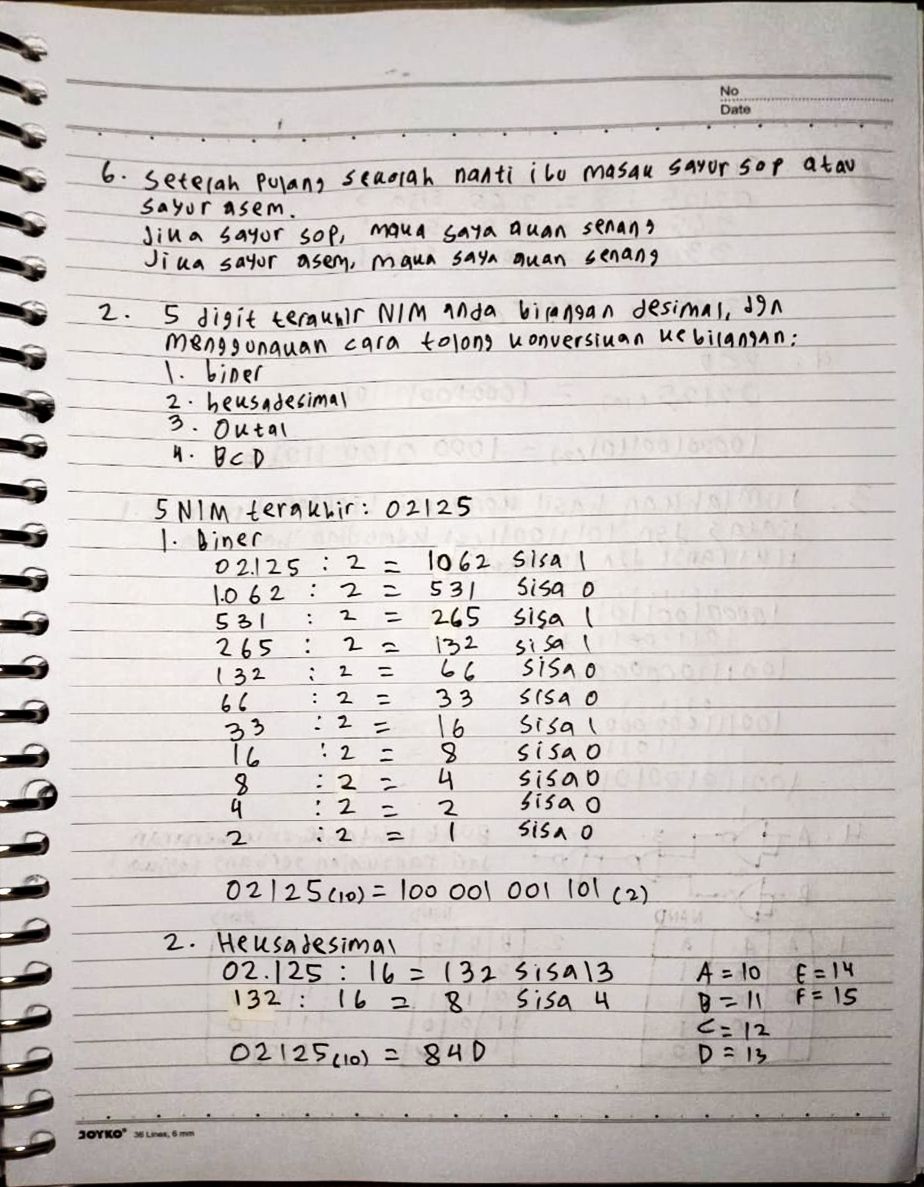 No
Date
6. Setelah Pulang sekolah nanti ibu masak sayur sop atau
sayur asem.
Jika sayur sop, maka saya akan senang
Jika sayur asem, maka saya akan senang
2. 5 digit terakhir NIM anda bilangan desimal, dgn
menggunakan cara tolong konversikan kebilangan:
1. biner
2. heksadesimal
3. Oktal
4. BCD
5 NIM terakhir: 02125
1. Biner
02.125 : 2 = 1062 sisa 1
1.062 : 2 = 531 sisa 0
531 : 2 = 265 sisa 1
265 : 2 = 132 sisa 1
132 : 2 = 66 sisa 0
66 : 2 = 33 sisa 0
33 : 2 = 16 sisa 1
16 : 2 = 8 sisa 0
8 : 2 = 4 sisa 0
4 : 2 = 2 sisa 0
2 : 2 = 1 sisa 0
02125 (10) = 100 001 001 101 (2)
2. Heksadesimal
02.125 : 16 = 132 sisa 13 A = 10 E = 14
132 : 16 = 8 sisa 4 B = 11 F = 15
C = 12
02125 (10) = 84D D = 13
JOYKO 36 Lines, 6 mm